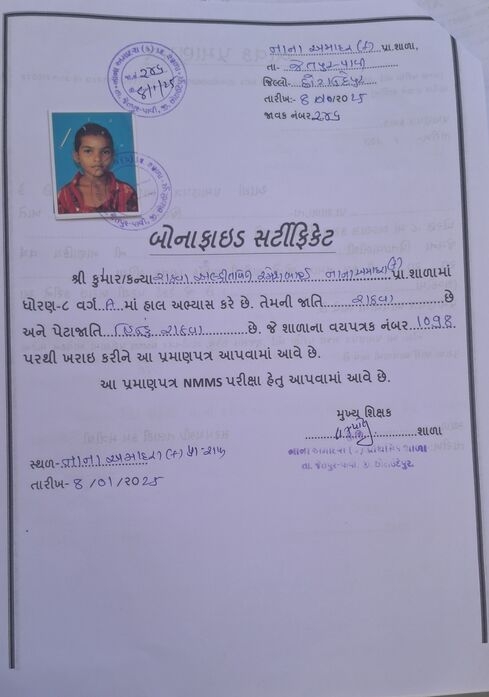 નાના અમાદરા (ક) પ્રા.શાળા,
તા. જેતપુર-પાવી
જિલ્લો:- છોટાઉદેપુર
તારીખ:- 8/01/2025
જાવક નંબર
બોનાફાઇડ સર્ટીફિકેટ
શ્રી કુમાર/કન્યા રાઠવા નાના અમાદરા (ક) પ્રા.શાળામાં
ધોરણ-૮ વર્ગ A માં હાલ અભ્યાસ કરે છે. તેમની જાતિ રાઠવા છે
અને પેટાજાતિ હિન્દુ રાઠવા છે. જે શાળાના વયપત્રક નંબર 1098
પરથી ખરાઇ કરીને આ પ્રમાણપત્ર આપવામાં આવે છે.
આ પ્રમાણપત્ર NMMS પરીક્ષા હેતુ આપવામાં આવે છે.
મુખ્ય શિક્ષક
શાળા
નાના અમાદરા (ક) પ્રાથમિક શાળા
તા. જેતપુર-પાવી જી. છોટાઉદેપુર
સ્થળ- નાના અમાદરા (ક) પ્રા-શાળા
તારીખ- 8/01/2025